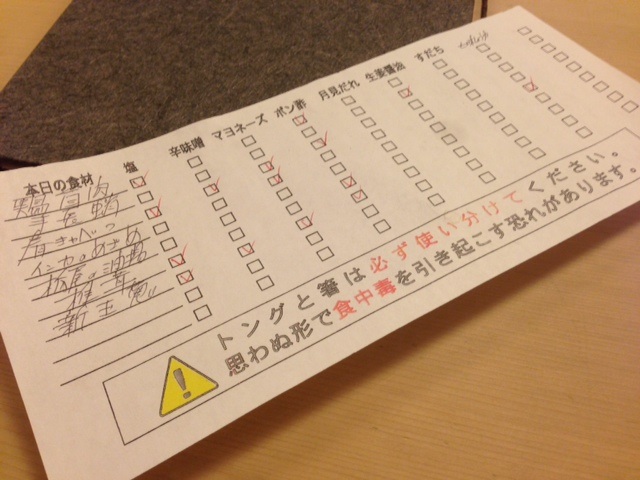 本日の食材 塩 辛味噌 マヨネーズ ポン酢 月見だれ 生姜醤油 すだち
春きゃべつ
インカのめざめ
椎茸
トングと箸は必ず使い分けてください。
思わぬ形で食中毒を引き起こす恐れがあります。